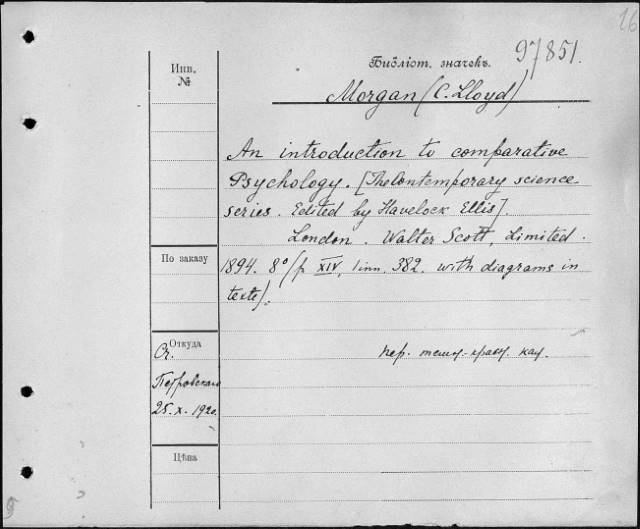 16
Библіот. значекъ.
97851.
Инв.
№
Morgan (C. Lloyd)
An introduction to comparative
Psychology. [The Contemporary science
series. Edited by Havelock Ellis].
London. Walter Scott, Limited.
По заказу
1894. 8° (p XIV, 1 nn. 382. with diagrams in
texte).
Откуда
пер. темн.-
25.X.1920.
Цѣна